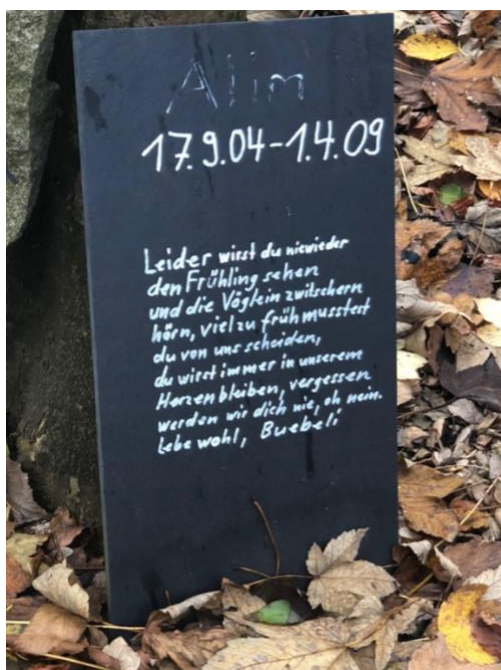 Alim
17.9.04-1.4.09
Leider wirst du niewieder
den Frühling sehen
und die Vöglein zwitschern
hörn, viel zu früh musstest
du von uns scheiden,
du wirst immer in unserem
Herzen bleiben, vergessen
werden wir dich nie, oh nein.
Lebe wohl, Buebeli